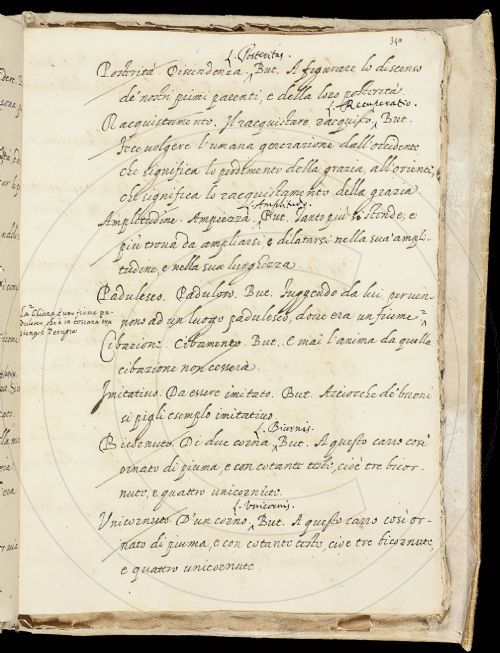 340
L. Posteritas.
Posterità. Discendenza. But. A figurare lo discenso
de' nostri primi parenti, e della loro posterità.
L. Recuperatio.
Racquistamento. Il racquistare racquisto. But.
Fece volgere l'umana generazione dall'occidente
che significa lo perdimento della grazia, all'oriente,
che significa lo racquistamento della grazia.
L. Amplitudo.
Amplitudine. Ampiezza. But. Tanto più si stende, e
più trova da ampliarsi e dilatarsi nella sua ampli-
tudine, e nella sua larghezza
Padulesco. Paduloso. But. Fuggendo da lui perven-
nono ad un luogo padulesco, dove era un fiume
La Chiana è uno fiume pa-
dulesco, che è in toscana tra
Perugia
Cibazione. Cibamento. But. E mai l'anima da quella
cibazione non cesserà.
Imitativo. Da essere imitato. But. Acciocchè de' buoni
si pigli esemplo imitativo.
L. Bicornis.
Bicornuto. Di due corna. But. A questo carro così
ornato di piuma, e con cotante teste, cioè tre bicor-
nute, e quattro unicornute.
L. Unicornis.
Unicornuto. D'un corno. But. A questo carro così or-
nato di piuma, e con cotante teste, cioè tre bicornute
e quattro unicornute.